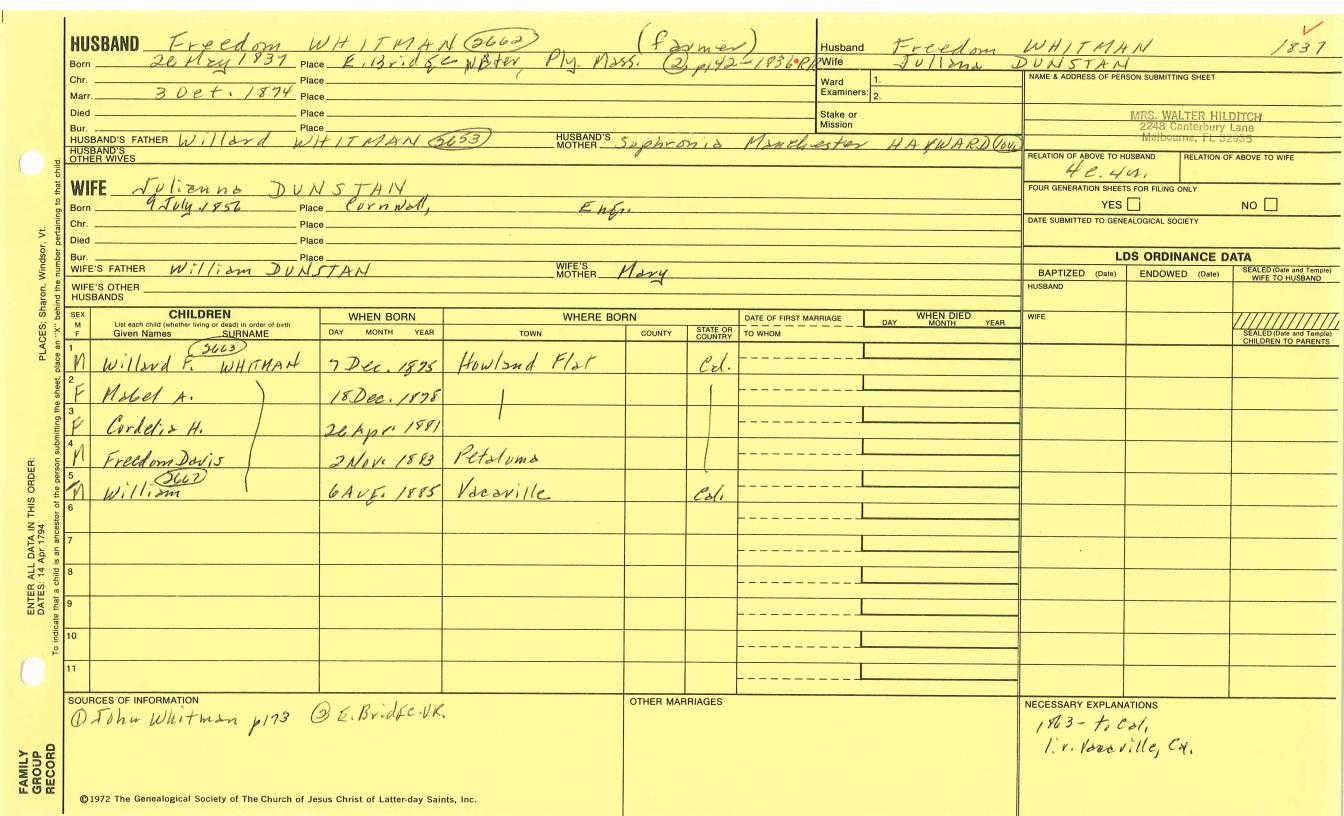 HUSBAND Freedom WHITMAN (5662) (farmer)
Born 26 May 1837 Place E. Bridgewater, Ply. Mass. ② p142 - 1836
Chr. Place
Marr. 3 Oct. 1874 Place
Died Place
Bur. Place
HUSBAND'S FATHER Willard WHITMAN (5653) HUSBAND'S MOTHER Sophronia Manchester HAYWARD
HUSBAND'S OTHER WIVES
WIFE Julianna DUNSTAN
Born 9 July 1856 Place Cornwall, Eng.
Chr. Place
Died Place
Bur. Place
WIFE'S FATHER William DUNSTAN WIFE'S MOTHER Mary
WIFE'S OTHER HUSBANDS
Husband Freedom WHITMAN 1837
Wife Juliana DUNSTAN
Ward Examiners: 1.
2.
Stake or Mission
NAME & ADDRESS OF PERSON SUBMITTING SHEET
MRS. WALTER HILDITCH
2248 Canterbury Lane
Melbourne, FL 32935
RELATION OF ABOVE TO HUSBAND RELATION OF ABOVE TO WIFE
4c. 4r.
FOUR GENERATION SHEETS FOR FILING ONLY
YES NO
DATE SUBMITTED TO GENEALOGICAL SOCIETY
LDS ORDINANCE DATA
BAPTIZED (Date) ENDOWED (Date) SEALED (Date and Temple) WIFE TO HUSBAND
HUSBAND
WIFE
SEALED (Date and Temple) CHILDREN TO PARENTS
SEX M F
CHILDREN
List each child (whether living or dead) in order of birth
Given Names SURNAME
WHEN BORN
DAY MONTH YEAR
WHERE BORN
TOWN COUNTY STATE OR COUNTRY
DATE OF FIRST MARRIAGE
TO WHOM
WHEN DIED
DAY MONTH YEAR
1 M Willard F. WHITMAN (5663) 7 Dec. 1875 Howland Flat Cal.
2 F Mabel A. 18 Dec. 1878
3 F Cordelia H. 26 Apr. 1881
4 M Freedom Davis 2 Nov. 1883 Petaluma
5 M William (5667) 6 Aug. 1885 Vacaville Cal.
6
7
8
9
10
11
SOURCES OF INFORMATION
① John Whitman p173 ② E. Bridge. V.R.
OTHER MARRIAGES
NECESSARY EXPLANATIONS
1863 - to Cal.
l.v. Vacaville, Ca.
©1972 The Genealogical Society of The Church of Jesus Christ of Latter-day Saints, Inc.
FAMILY GROUP RECORD
ENTER ALL DATA IN THIS ORDER:
DATES: 14 Apr 1794
PLACES: Sharon, Windsor, Vt.
To indicate that a child is an ancestor of the person submitting the sheet, place an "X" behind the number pertaining to that child.